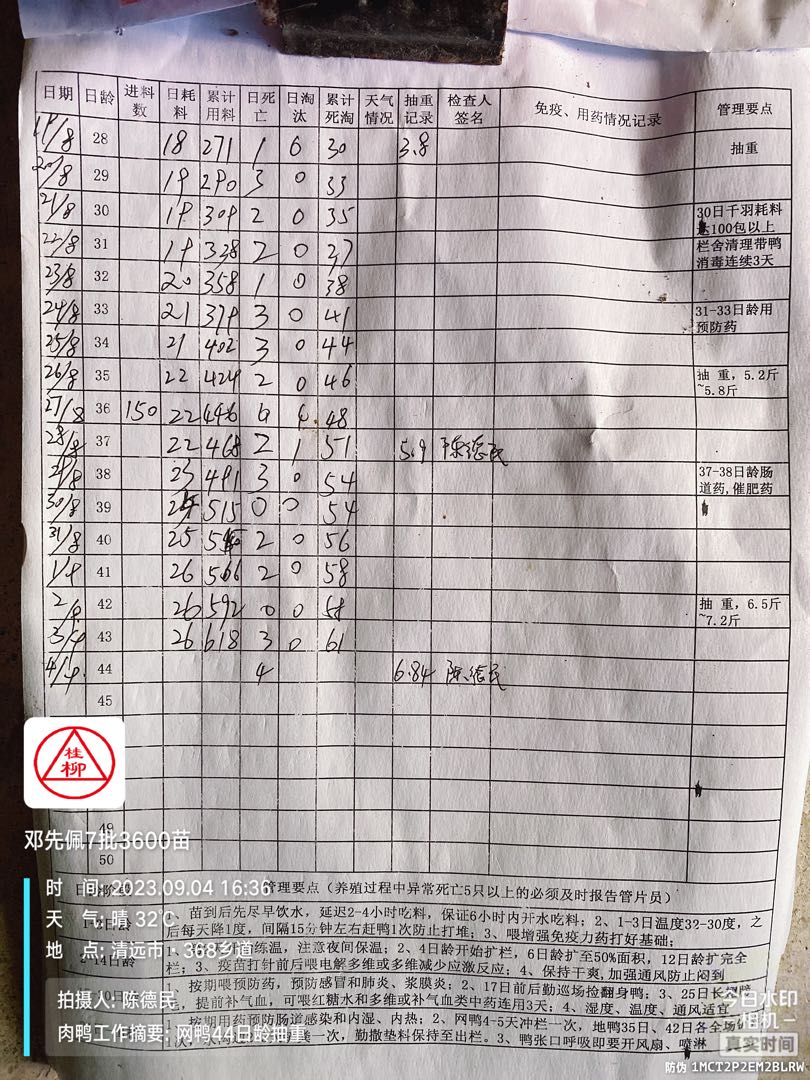 日期 日龄 进料数 日耗料 累计用料 日死亡 日淘汰 累计死淘 天气情况 抽重记录 检查人签名 免疫、用药情况记录 管理要点
19/8 28 18 271 1 0 30 3.8 抽重
20/8 29 19 290 3 0 33
21/8 30 19 309 2 0 35 30日千羽耗料
达100包以上
22/8 31 19 338 2 0 37 栏舍清理带鸭
消毒连续3天
23/8 32 20 358 1 0 38
24/8 33 21 379 3 0 41 31-33日龄用
预防药
25/8 34 21 402 3 0 44
26/8 35 22 424 2 0 46 抽 重，5.2斤
~5.8斤
27/8 36 150 22 446 48
28/8 37 22 468 2 1 51 5.9 陈德民
29/8 38 23 491 3 0 54 37-38日龄肠
道药,催肥药
30/8 39 24 515 0 0 54
31/8 40 25 540 2 0 56
1/9 41 26 566 2 0 58
2/9 42 26 592 0 0 58 抽 重，6.5斤
~7.2斤
3/9 43 26 618 3 0 61
4/9 44 4 6.84 陈德民
45
49
50
桂柳
邓先佩7批3600苗
时 间: 2023.09.04 16:36
天 气: 晴 32℃
地 点: 清远市·368乡道
拍摄人: 陈德民
肉鸭工作摘要: 网鸭44日龄抽重
管理要点（养殖过程中异常死亡5只以上的必须及时报告管片员）
苗到后先尽早饮水，延迟2-4小时吃料，保证6小时内开水吃料；2、1-3日温度32-30度，之
后每天降1度，间隔15分钟左右赶鸭1次防止打堆；3、喂增强免疫力药打好基础；
练温，注意夜间保温；2、4日龄开始扩栏，6日龄扩至50%面积，12日龄扩完全
栏；3、疫苗打针前后喂电解多维或多维减少应激反应；4、保持干爽,加强通风防止闷到
按期喂预防药，预防感冒和肺炎、浆膜炎；2、17日前后勤巡场捡翻身鸭；3、25日长
提前补气血，可喂红糖水和多维或补气血类中药连用3天；4、湿度、温度、通风适宜
按期用药预防肠道感染和内湿、内热；2、网鸭4-5天冲栏一次，地鸭35日、42日各全场
一次，勤撒垫料保持至出栏。3、鸭张口呼吸即要开风扇、喷淋
今日水印
相机
真实时间
防伪 1MCT2P2EM2BLRW